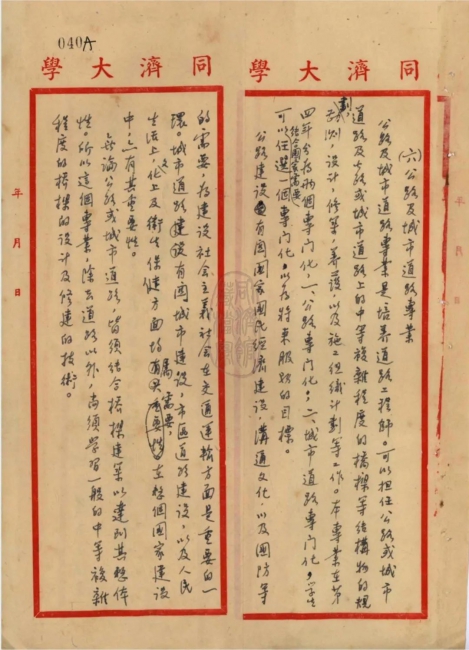 040A
同濟大學
(六)公路及城市道路專業
公路及城市道路專業是培养道路工程師。可以担任公路或城市
道路及公路或城市道路上的中等複雜程度的橋樑等結構物的規
劃,勘測,設計,修築,养護,以及施工組織計劃等工作。本專業在第
四年分為兩個專門化,一、公路專門化,二、城市道路專門化,學生
可以結合國家需要任選一個專門化,以為將來服務的目標。
公路建設有國國家國民經濟建設,溝通文化,以及國防等
同濟大學
的需要,為建設社会主義社会在交通運輸方面是重要的一
環。城市道路建設有國城市建設,市區道路建設,以及人民
生活上文化上及衛生保健方面均屬需要,在整個國家建設
中,亦有其重要性。
無論公路或城市道路,皆須結合橋樑建築以達到其整体
性,所以這個專業,除去道路以外,尚須學習一般的中等複雜
程度的橋樑的設計及修建的技術。
年 月 日